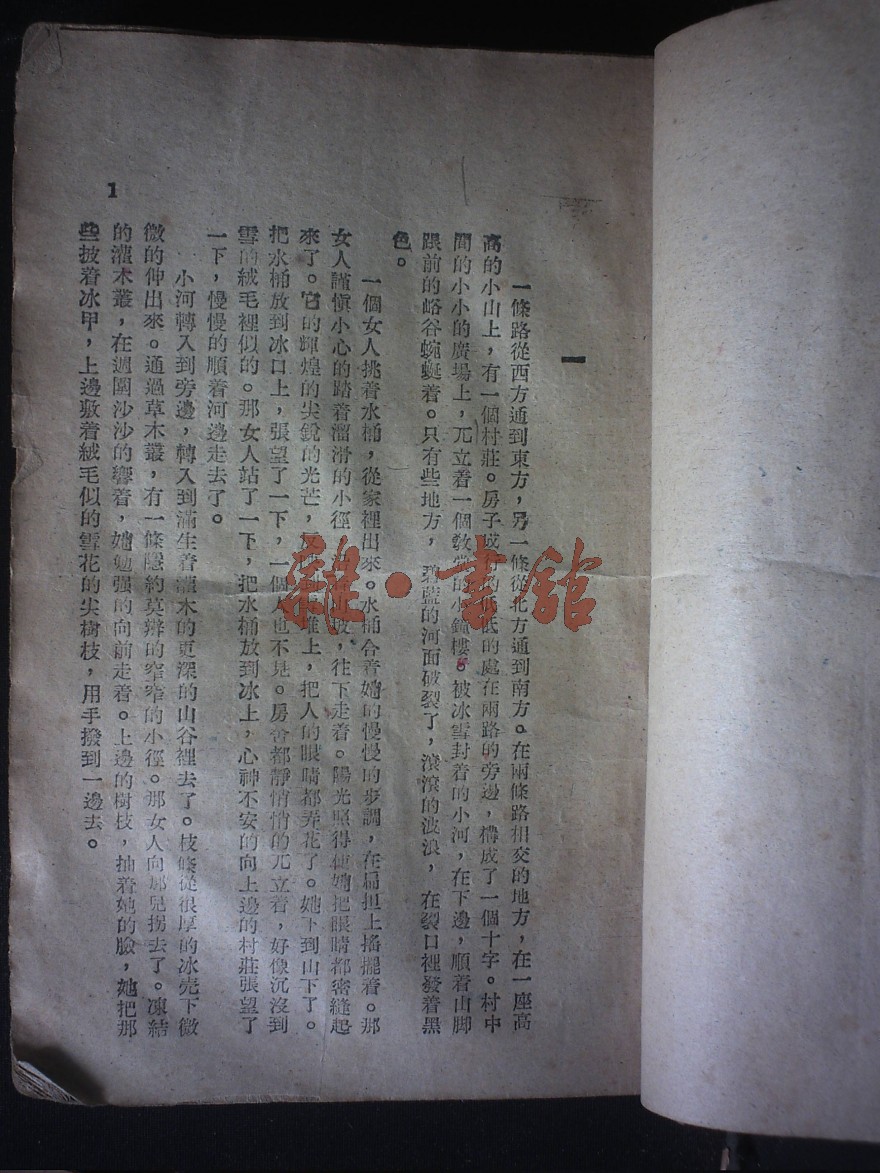 一
一條路從西方通到東方，另一條從北方通到南方。在兩條路相交的地方，在一座高
高的小山上，有一個村莊。房子成的低低的處在兩路的旁邊，構成了一個十字。村中
間的小小的廣場上，兀立着一個教堂的小鐘樓。被冰雪封着的小河，在下邊，順着山脚
跟前的峪谷蜿蜒着。只有些地方，碧藍的河面破裂了，滾滾的波浪，在裂口裡發着黑
色。
一個女人挑着水桶，從家裡出來。水桶合着她的慢慢的步調，在扁担上搖擺着。那
女人謹愼小心的踏着溜滑的小徑，山坡，往下走着。陽光照得使她把眼睛都密縫起
來了。它的輝煌的尖銳的光芒，反到堆上，把人的眼睛都弄花了。她下到山下了。
把水桶放到冰口上，張望了一下，一個人也不見。房舍都靜悄悄的兀立着，好像沉沒到
雪的絨毛裡似的。那女人站了一下，把水桶放到冰上，心神不安的向上邊的村莊張望了
一下，慢慢的順着河邊走去了。
小河轉入到旁邊，轉入到滿生着灌木的更深的山谷裡去了。枝條從很厚的冰壳下微
微的伸出來。通過草木叢，有一條隱約莫辨的窄窄的小徑。那女人向那兒拐去了。凍結
的灌木叢，在週圍沙沙的響着，她勉强的向前走着。上邊的樹枝，抽着她的臉，她把那
些披着冰甲，上邊敷着絨毛似的雪花的尖樹枝，用手撥到一邊去。
1
雜·書舘